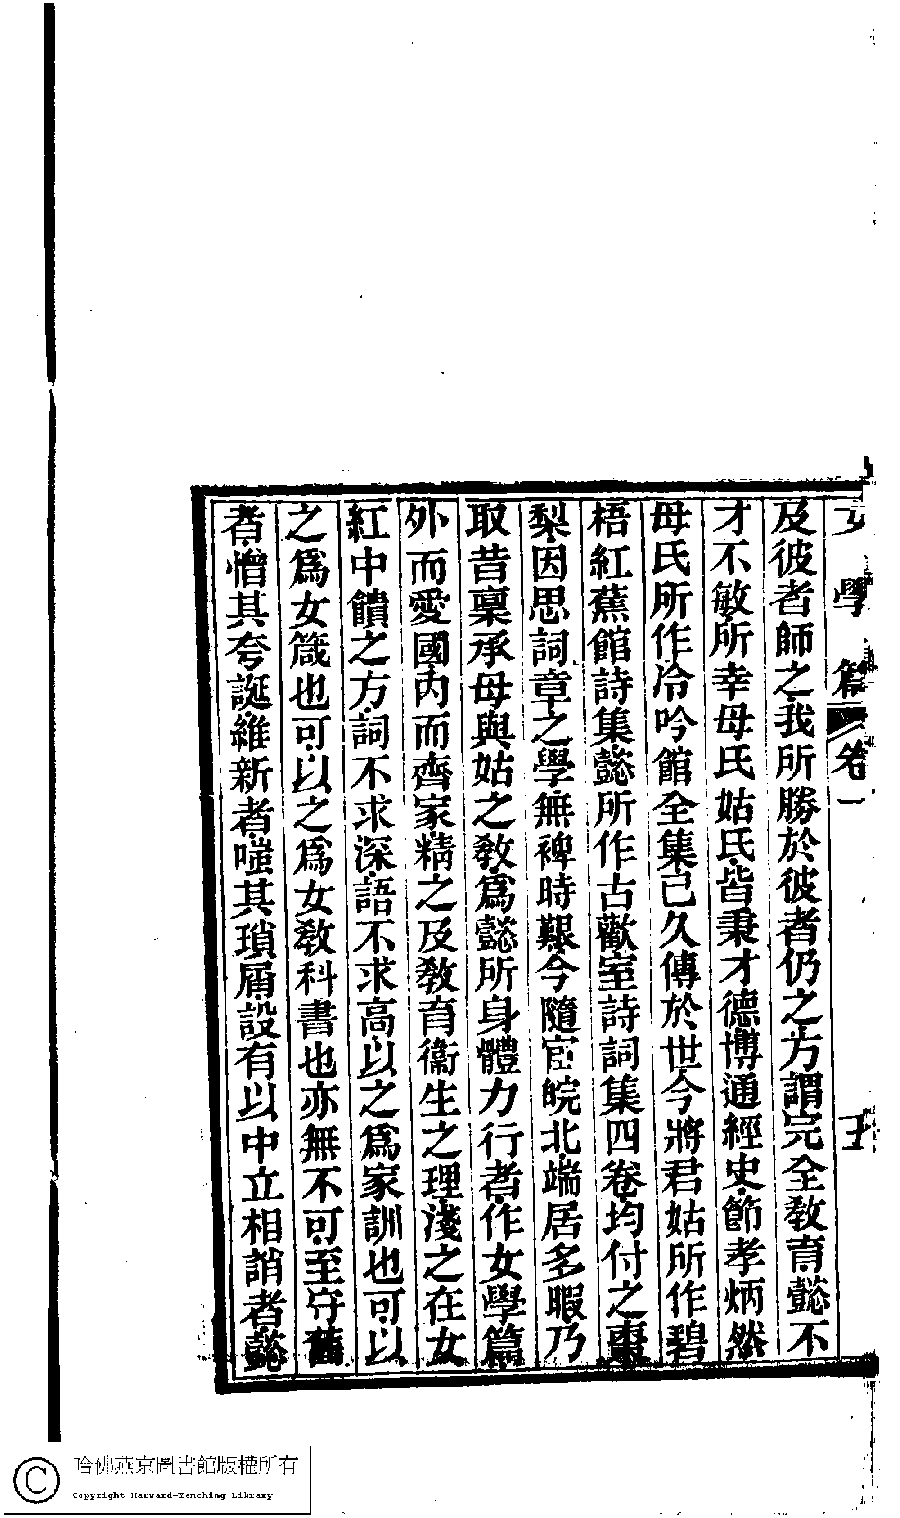 女學篇 卷一
及彼者師之我所勝於彼者仍之方謂完全敎育懿不
才不敏所幸母氏姑氏皆秉才德博通經史節孝炳然
母氏所作冷吟館全集已久傳於世今將君姑所作碧
梧紅蕉館詩集懿所作古歡室詩詞集四卷均付之棗
梨因思詞章之學無裨時艱今隨宦皖北端居多暇乃
取昔稟承母與姑之敎爲懿所身體力行者作女學篇
外而愛國內而齊家精之及敎育衞生之理淺之在女
紅中饋之方詞不求深語不求高以之爲家訓也可以
之爲女箴也可以之爲女敎科書也亦無不可至守舊
者憎其夸誕維新者嗤其瑣屑設有以中立相誚者懿
哈佛燕京圖書館版權所有
Copyright Harvard-Yenching Library